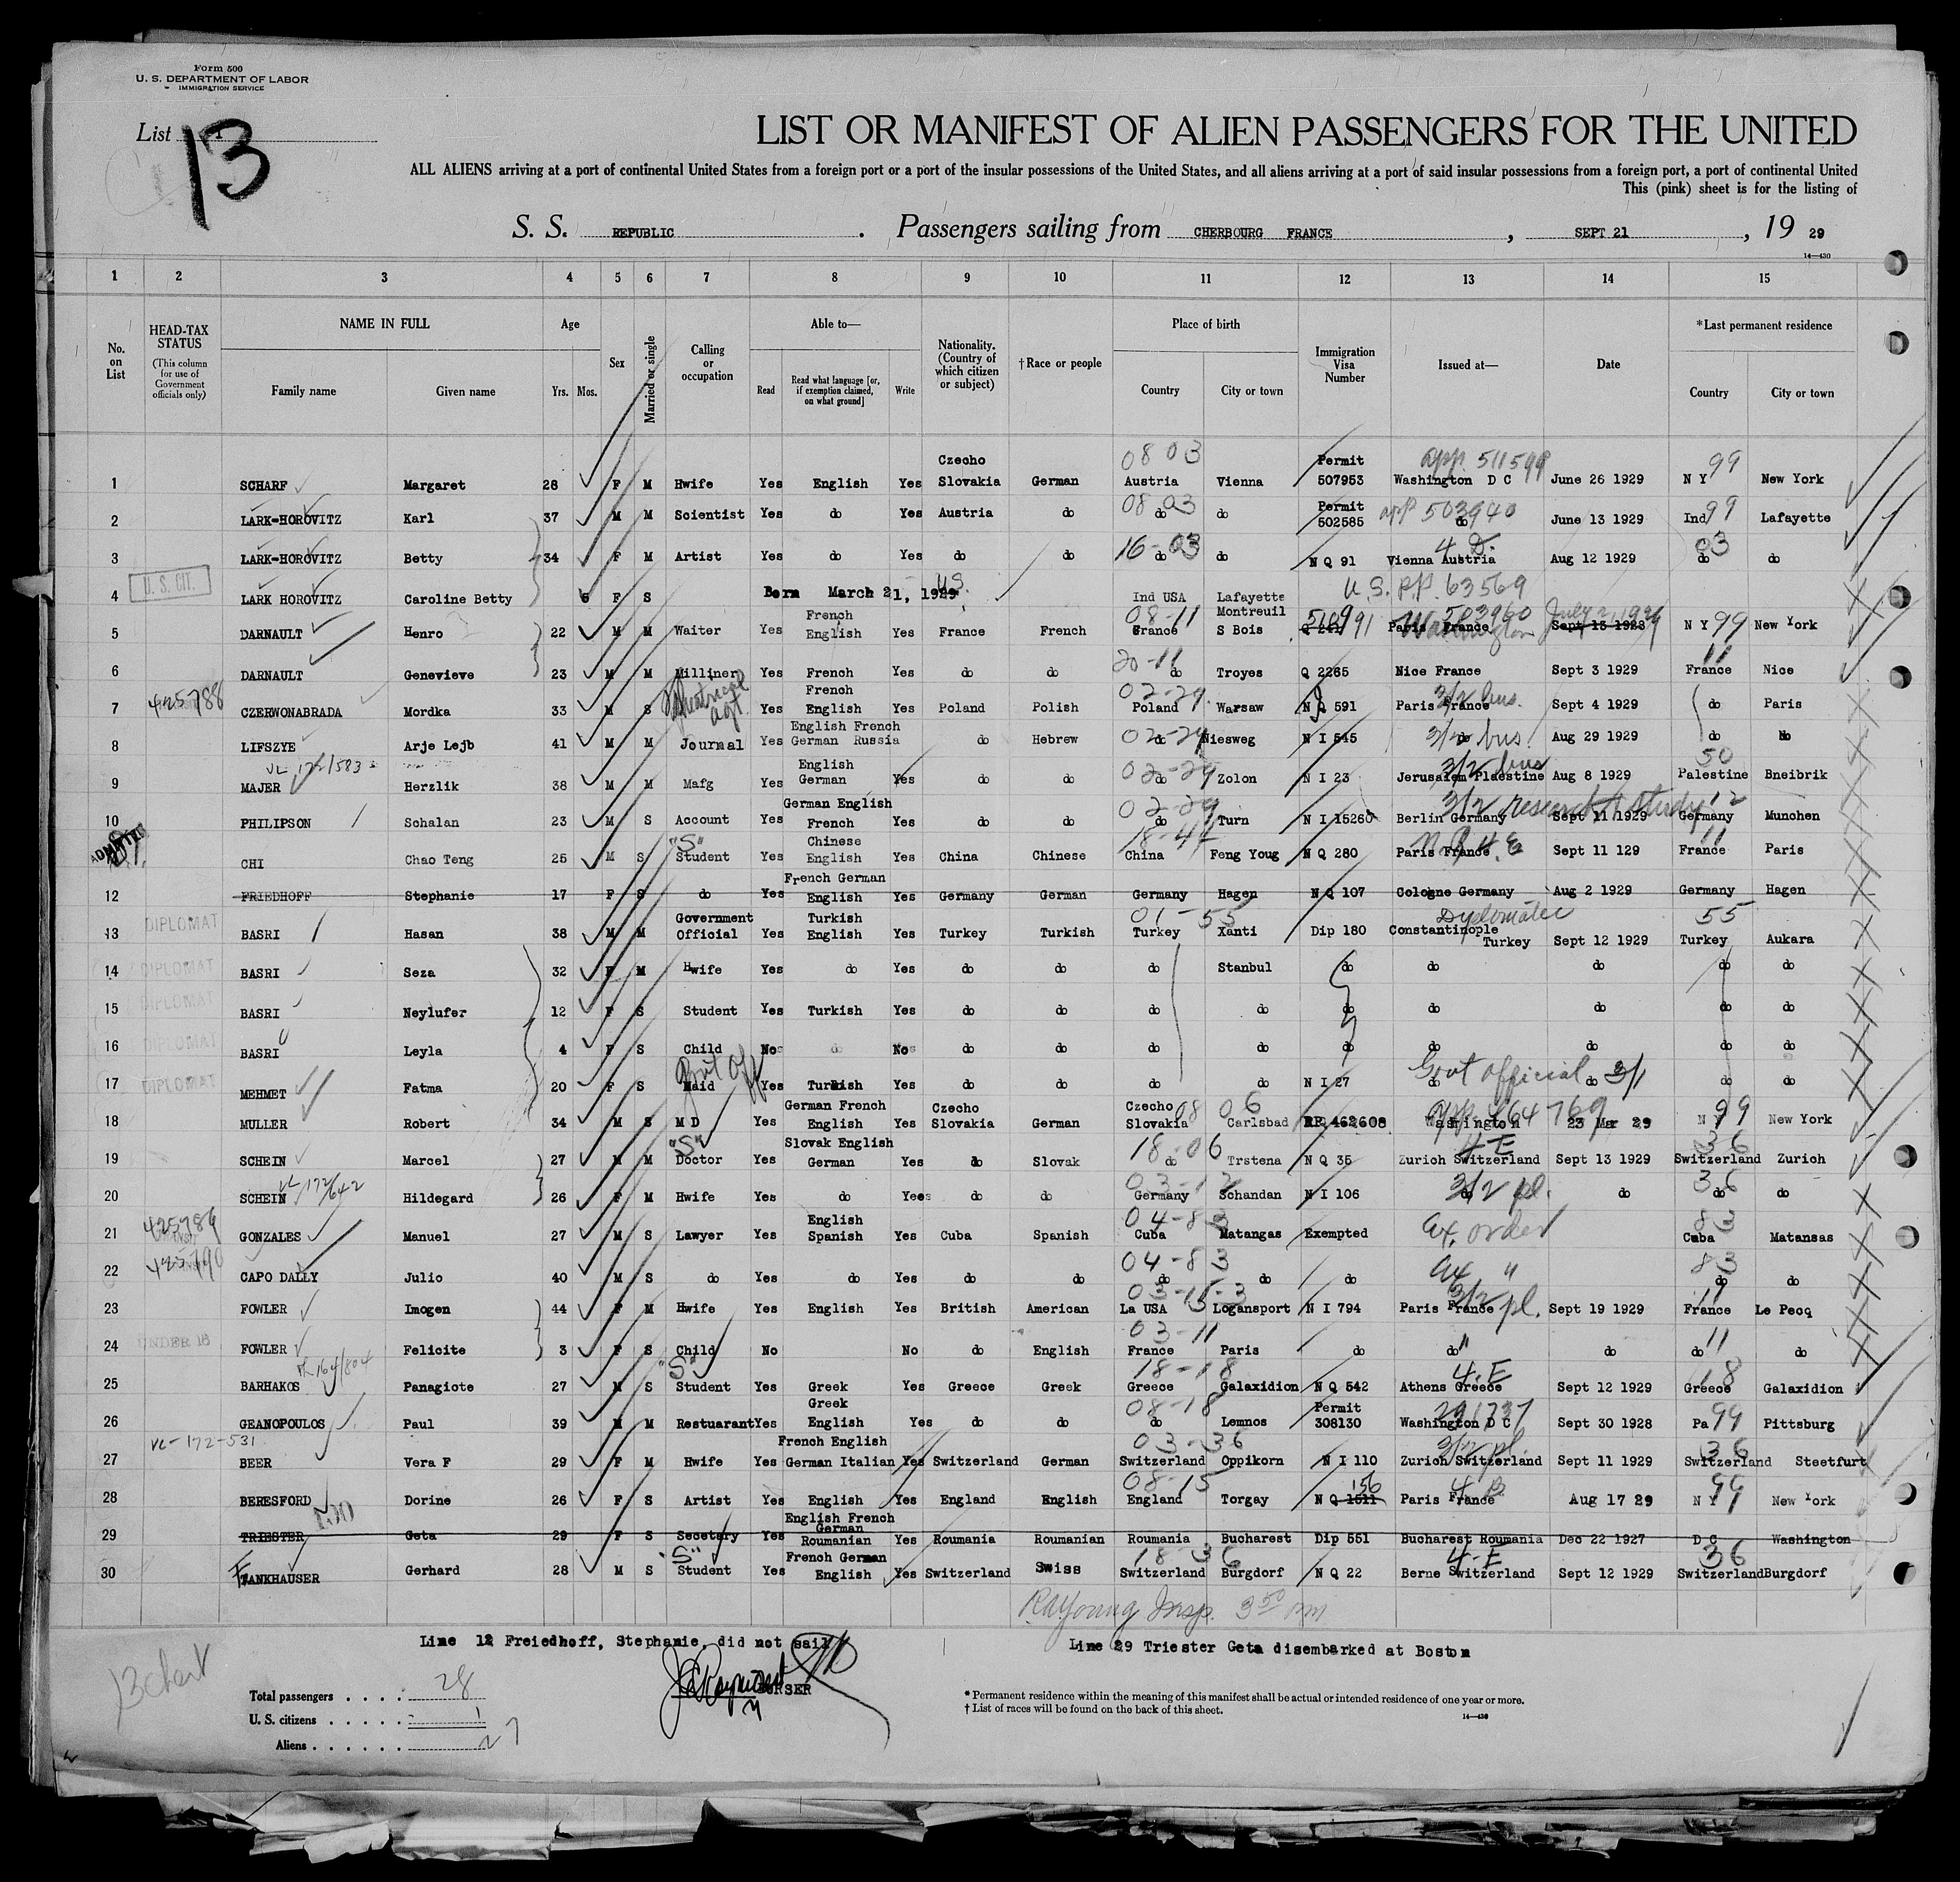 Form 500
U. S. DEPARTMENT OF LABOR
IMMIGRATION SERVICE
List 13
LIST OR MANIFEST OF ALIEN PASSENGERS FOR THE UNITED
ALL ALIENS arriving at a port of continental United States from a foreign port or a port of the insular possessions of the United States, and all aliens arriving at a port of said insular possessions from a foreign port, a port of continental United
This (pink) sheet is for the listing of
S. S. REPUBLIC . Passengers sailing from CHERBOURG FRANCE , SEPT 21 , 19 29
14—430
1 2 3 4 5 6 7 8 9 10 11 12 13 14 15
No. on List
HEAD-TAX STATUS
(This column for use of Government officials only)
NAME IN FULL
Family name Given name
Age
Yrs. Mos.
Sex
Married or single
Calling or occupation
Able to—
Read
Read what language [or, if exemption claimed, on what ground]
Write
Nationality. (Country of which citizen or subject)
†Race or people
Place of birth
Country City or town
Immigration Visa Number
Issued at—
Date
*Last permanent residence
Country City or town
1 SCHARF Margaret 28 F M Hwife Yes English Yes Czecho Slovakia German 08 03 Austria Vienna Permit 507953 app. 511599 Washington D C June 26 1929 N Y 99 New York
2 LARK-HOROVITZ Karl 37 M M Scientist Yes do Yes Austria do 08 03 do do Permit 502585 app 503940 do June 13 1929 Ind 99 Lafayette
3 LARK-HOROVITZ Betty 34 F M Artist Yes do Yes do do 16-03 do do N Q 91 4 D. Vienna Austria Aug 12 1929 03 do do
U. S. CIT.
4 LARK HOROVITZ Caroline Betty 5 F S Born March 21, 1929 US Ind USA Lafayette U.S. P.P. 63569
5 DARNAULT Henro 22 M M Waiter Yes French English Yes France French 08-11 France Montreuil S Bois 503960 Paris France Washington Sept 13 1928 N Y 99 New York
6 DARNAULT Genevieve 23 M M Milliner Yes French Yes do do 20-11 do Troyes Q 2265 Nice France Sept 3 1929 11 France Nice
7 425788 CZERWONABRADA Mordka 33 M S Theatrical agt. Yes French English Yes Poland Polish 02-29 Poland Warsaw N Q 591 3/2 bus. Paris France Sept 4 1929 do Paris
8 LIFSZYE Arje Lejb 41 M M Journal Yes English French German Russia do Hebrew 02-29 do Niesweg N I 545 3/2 bus. do Aug 29 1929 do do
9 MAJER Herzlik 38 M M Mafg Yes English German Yes do do 02-29 do Zolon N I 23 3/2 bus Jerusalem Plaestine Aug 8 1929 50 Palestine Bneibrik
10 PHILIPSON Schalan 23 M S Account Yes German English French Yes do do 02-29 do Turn N I 15260 3/2 research study Berlin Germany Sept 11 1929 12 Germany Munchen
ADMITTED
CHI Chao Teng 25 M S "S" Student Yes Chinese English Yes China Chinese 18-44 China Feng Youg N Q 280 4 E Paris France Sept 11 129 11 France Paris
12 FRIEDHOFF Stephanie 17 F S do Yes French German English Yes Germany German Germany Hagen N Q 107 Cologne Germany Aug 2 1929 Germany Hagen
13 DIPLOMAT BASRI Hasan 38 M M Government Official Yes Turkish English Yes Turkey Turkish 01-55 Turkey Xanti Dip 180 Diplomatic Constantinople Turkey Sept 12 1929 55 Turkey Aukara
14 DIPLOMAT BASRI Seza 32 F M Hwife Yes do Yes do do do Stanbul do do do do do
15 DIPLOMAT BASRI Neylufer 12 F S Student Yes Turkish Yes do do do do do do do do do
16 DIPLOMAT BASRI Leyla 4 F S Child No do No do do do do do do do do do
17 DIPLOMAT MEHMET Fatma 20 F S Govt Off Maid Yes Turkish Yes do do do do N I 27 Govt official 3/1 do do do do
18 MULLER Robert 34 M S M D Yes German French English Yes Czecho Slovakia German Czecho Slovakia 08 06 Carlsbad RP 462608 app. 464769 Washington 23 Mar 29 N Y 99 New York
19 SCHEIN Marcel 27 M M "S" Doctor Yes Slovak English German Yes do Slovak 18-06 do Trstena N Q 35 4-E Zurich Switzerland Sept 13 1929 36 Switzerland Zurich
20 SCHEIN VL 172/642 Hildegard 26 F M Hwife Yes do Yes do do 03-12 Germany Schandan N I 106 3/2 pl. do do 36 do do
21 425789 GONZALES Manuel 27 M S Lawyer Yes English Spanish Yes Cuba Spanish 04-83 Cuba Matangas Exempted Ex. order 83 Cuba Matansas
22 425790 CAPO DALLY Julio 40 M S do Yes do Yes do do 04-83 do do do Ex " 83 do do
23 FOWLER Imogen 44 F M Hwife Yes English Yes British American 03-15-3 La USA Logansport N I 794 3/2 pl. Paris France Sept 19 1929 11 France Le Pecq
24 UNDER 16 FOWLER Felicite 3 F S Child No No do English 03-11 France Paris do do " do 11 do do
25 BARHAKOS Panagiote 27 M S "S" Student Yes Greek Yes Greece Greek 18-18 Greece Galaxidion N Q 542 4.E Athens Greece Sept 12 1929 18 Greece Galaxidion
26 GEANOPOULOS Paul 39 M M Restuarant Yes Greek English Yes do do 08-18 do Lemnos Permit 308130 Washington D C Sept 30 1928 Pa 99 Pittsburg
VL-172-531
27 BEER Vera F 29 F M Hwife Yes French English German Italian Yes Switzerland German 03-36 Switzerland Oppikorn N I 110 3/2 pl. Zurich Switzerland Sept 11 1929 36 Switzerland Steetfurt
28 BERESFORD Dorine 26 F S Artist Yes English Yes England English 08-15 England Torgay N Q 1511 156 Paris France Aug 17 29 N Y 99 New York
29 TRIESTER Geta 29 F S Secetary Yes English French German Roumanian Yes Roumania Roumanian Roumania Bucharest Dip 551 Bucharest Roumania Dec 22 1927 D C Washington
30 FANKHAUSER Gerhard 28 M S "S" Student Yes French German English Yes Switzerland Swiss 18-36 Switzerland Burgdorf N Q 22 4-E Berne Switzerland Sept 12 1929 36 Switzerland Burgdorf
RAYoung Insp. 3 50 pm
Line 12 Freiedhoff, Stephanie, did not sail
Line 29 Triester Geta disembarked at Boston
PURSER
Total passengers . . . . 28
U. S. citizens . . . . . 1
Aliens . . . . . . 27
* Permanent residence within the meaning of this manifest shall be actual or intended residence of one year or more.
† List of races will be found on the back of this sheet.
14—430